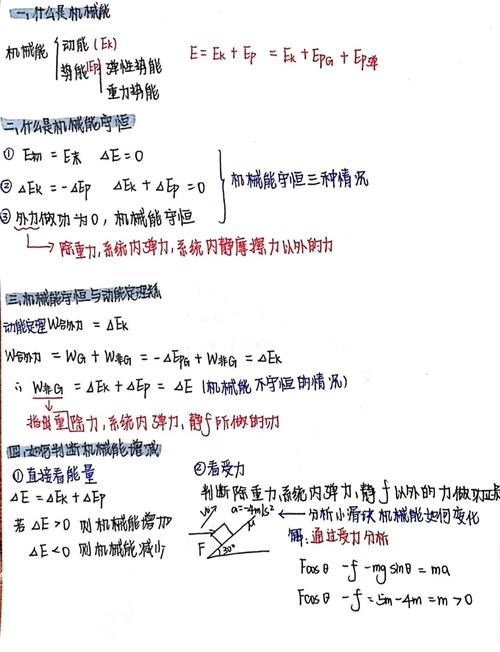 一、什么是机械能
机械能 { 动能(Ek)
势能(Ep) { 弹性势能
重力势能
E = Ek + Ep = Ek + EpG + Ep弹
二、什么是机械能守恒
① E初 = E末 ΔE = 0
② ΔEk = -ΔEp ΔEk + ΔEp = 0
③ 外力做功为0, 机械能守恒
} 机械能守恒三种情况
除重力, 系统内弹力, 系统内静摩擦力以外的力
三、机械能守恒与动能定理
动能定理 W合外力 = ΔEk
W合外力 = WG + W非G = -ΔEpG + W非G = ΔEk
∴ W非G = ΔEk + ΔEp = ΔE (机械能不守恒的情况)
除力, 系统内弹力, 静f所做的功
四、如何判断机械能增减
① 直接看能量
ΔE = ΔEk + ΔEp
若 ΔE > 0 则机械能增加
ΔE < 0 则机械能减少
② 看受力
判断除重力, 系统内弹力, 静f以外的力做功正负
V0 a=-4m/s²
F 30°
分析小滑块机械能如何变化
解: 通过受力分析
Fcosθ - f - mg sinθ = ma
Fcosθ - f = 5m - 4m = m > 0